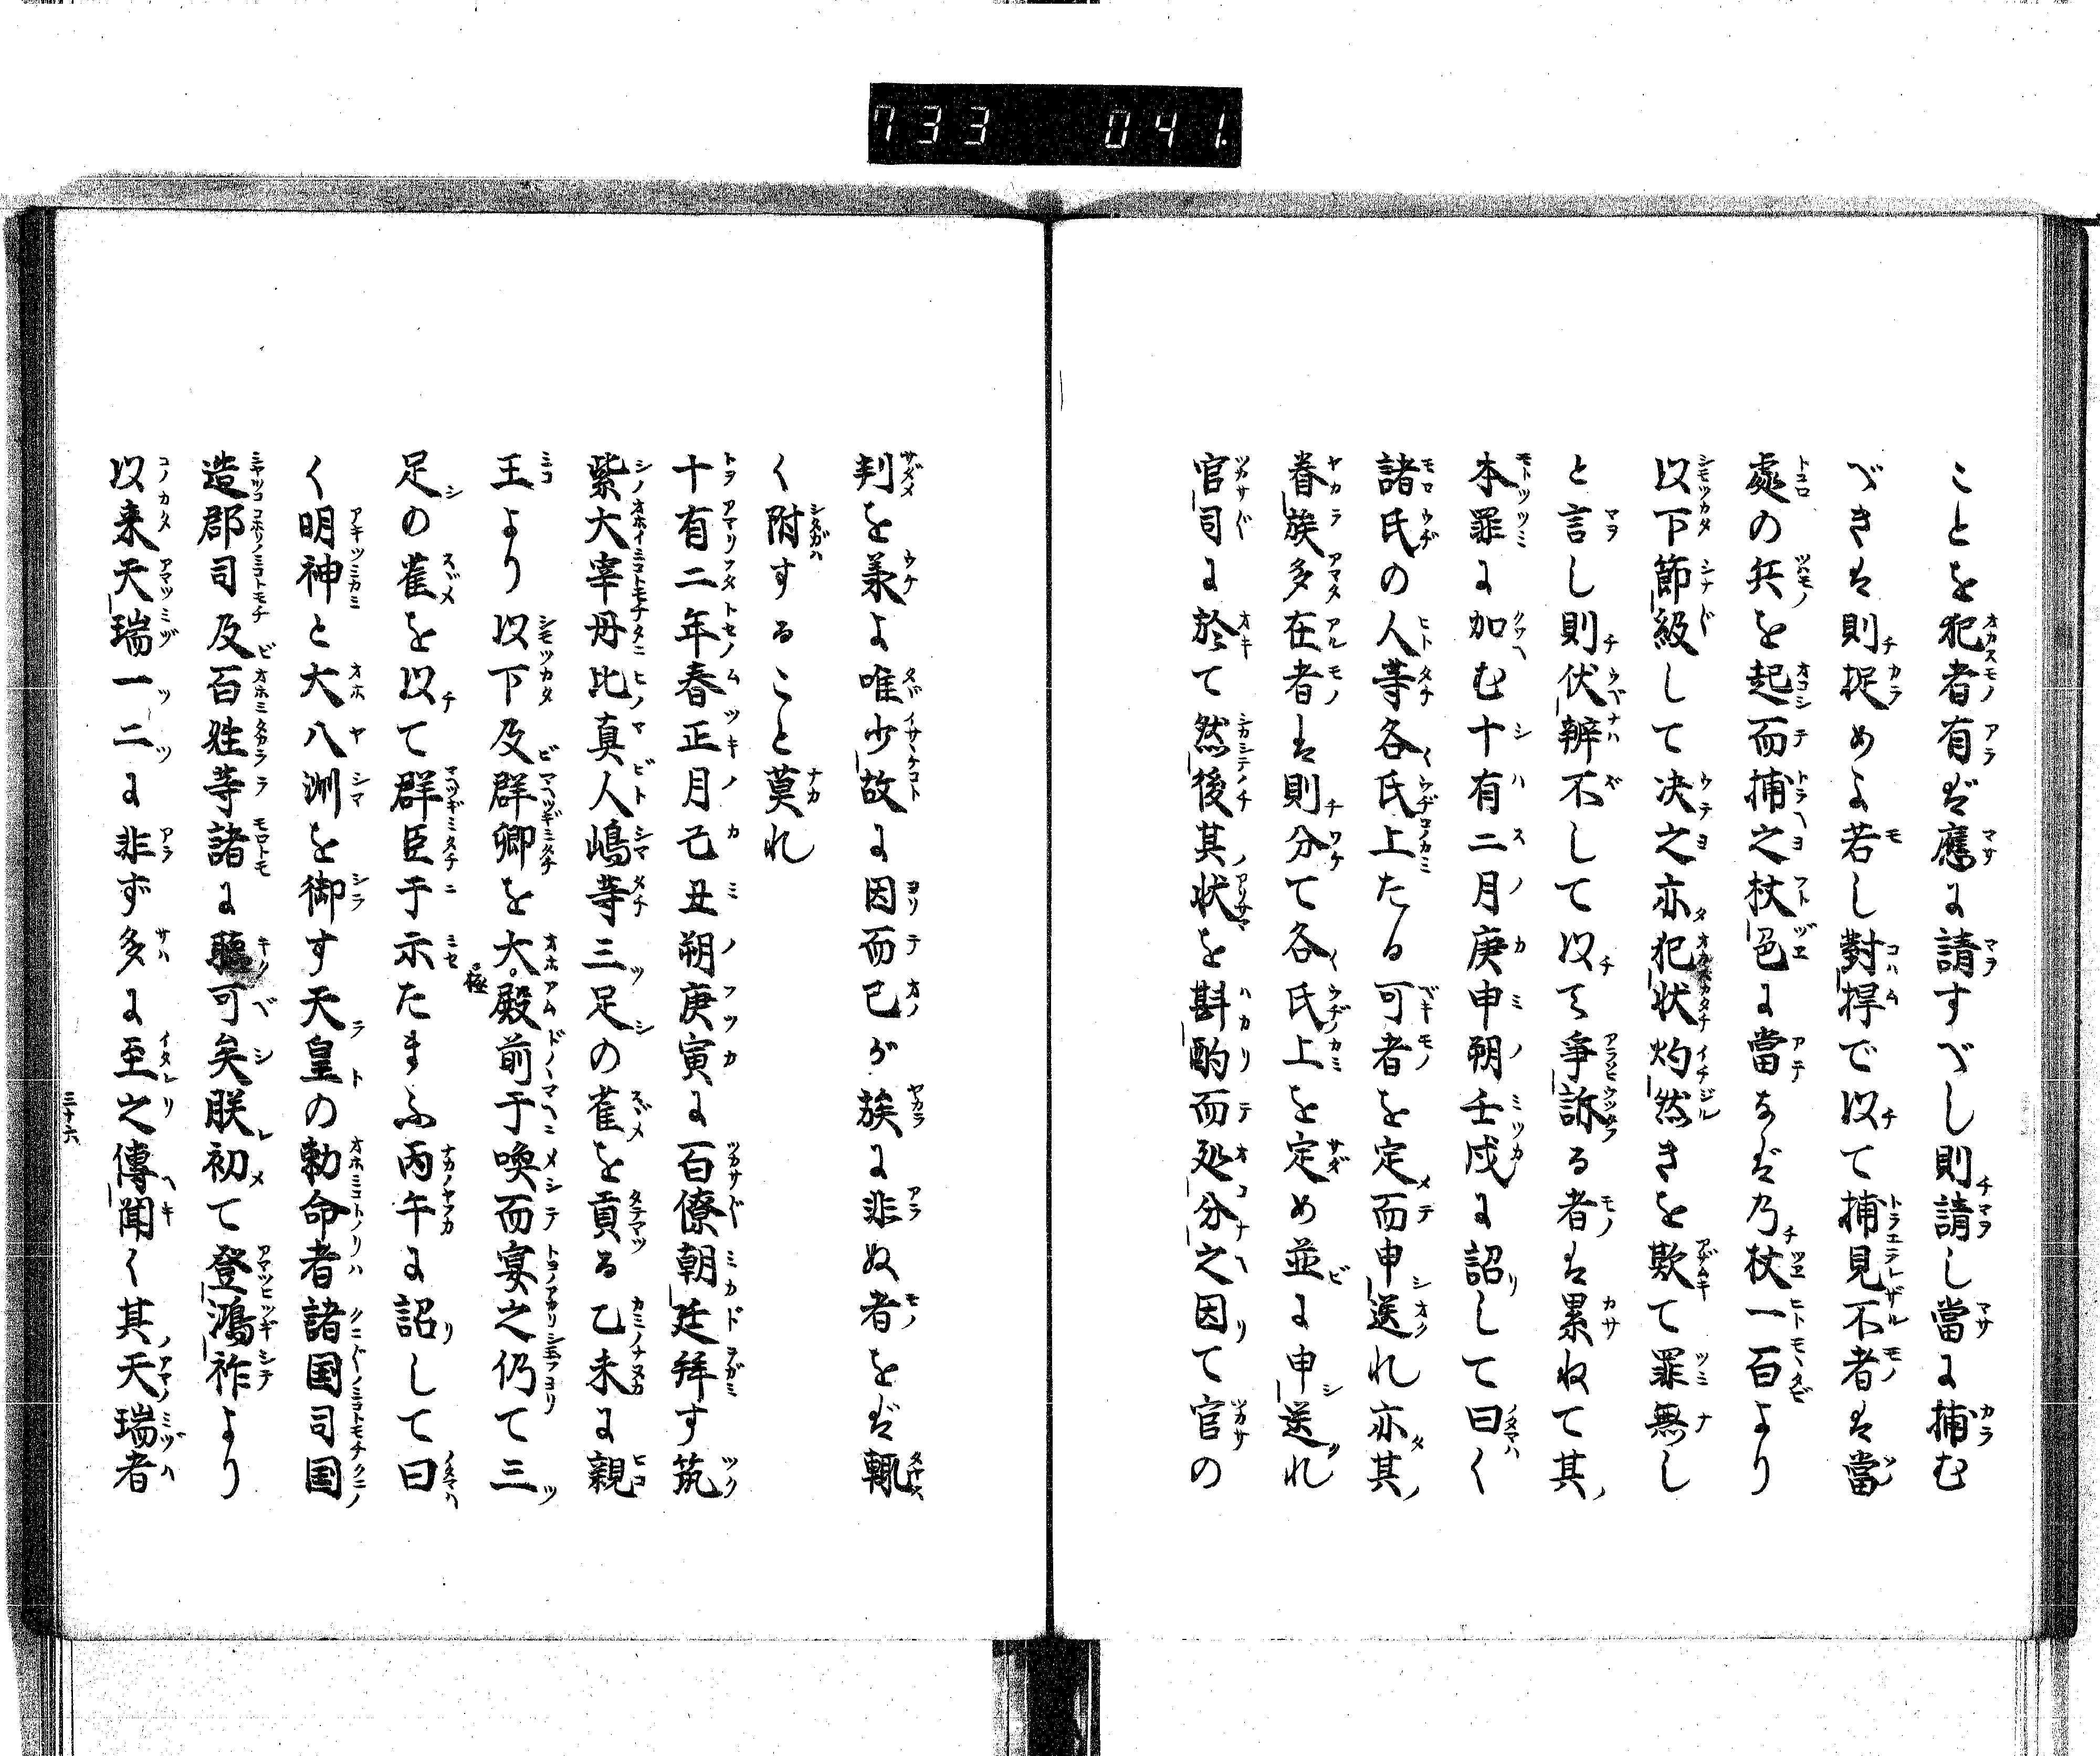 733 041.
ことを犯者有ば應に請すべし則請し當に捕む
べきは則捉めよ若し對捍で以て捕見不者は當
處の兵を起而捕之杖色に當なば乃杖一百より
以下節級して决之亦犯状灼然きを欺て罪無し
と言し則伏辨不して以て爭訴る者は累ねて其
本罪に加む十有二月庚申朔壬戌に詔して曰く
諸氏の人等各氏上たる可者を定而申送れ亦其
眷族多在者は則分て各氏上を定め並に申送れ
官司に於て然後其状を斟酌而処分之因て官の
判を兼よ唯少故に因而已が族に非ぬ者をば輙
く附すること莫れ
十有二年春正月己丑朔庚寅に百僚朝廷拜す筑
紫大宰丹比真人嶋等三足の雀を貢る乙未に親
王より以下及群卿を大極殿前于喚而宴之仍て三
足の雀を以て群臣于示たまふ丙午に詔して曰
く明神と大八洲を御す天皇の勅命者諸国司国
造郡司及百姓等諸に聽可矣朕初て登鴻祚より
以来天瑞一二に非ず多に至之傳聞く其天瑞者
三十六